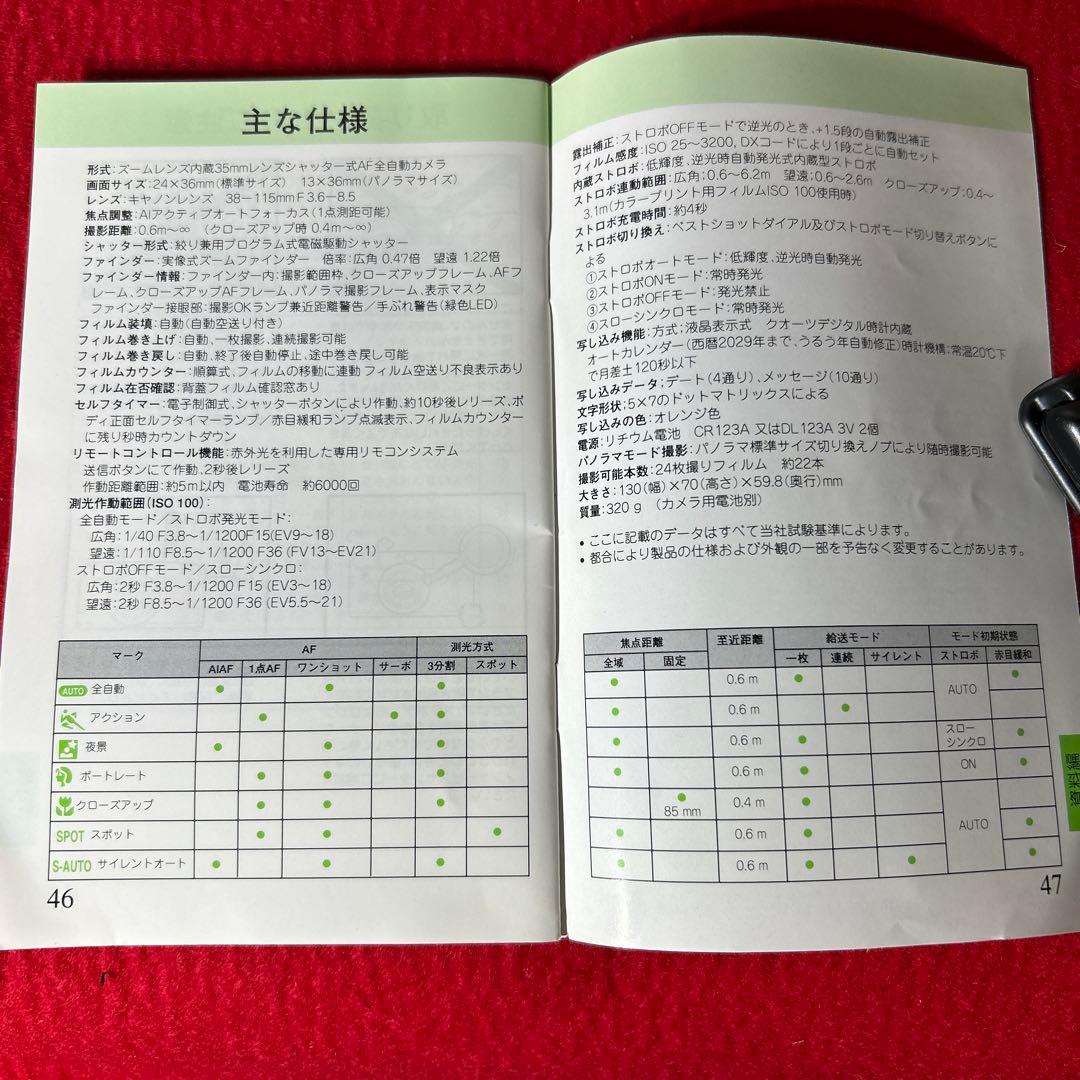 主な仕様
形式:ズームレンズ内蔵35mmレンズシャッター式AF全自動カメラ
画面サイズ:24×36mm(標準サイズ) 13×36mm(パノラマサイズ)
レンズ:キヤノンレンズ 38−115mm F3.6−8.5
焦点調整:AIアクティブオートフォーカス(1点測距可能)
撮影距離:0.6m〜∞ (クローズアップ時 0.4m〜∞)
シャッター形式:絞り兼用プログラム式電磁駆動シャッター
ファインダー:実像式ズームファインダー 倍率:広角 0.47倍 望遠 1.22倍
ファインダー情報:ファインダー内:撮影範囲枠、クローズアップフレーム、AFフ
レーム、クローズアップAFフレーム、パノラマ撮影フレーム、表示マスク
ファインダー接眼部:撮影OKランプ兼近距離警告/手ぶれ警告(緑色LED)
フィルム装填:自動(自動空送り付き)
フィルム巻き上げ:自動、一枚撮影、連続撮影可能
フィルム巻き戻し:自動、終了後自動停止、途中巻き戻し可能
フィルムカウンター:順算式、フィルムの移動に連動 フィルム空送り不良表示あり
フィルム在否確認:背蓋フィルム確認窓あり
セルフタイマー:電子制御式、シャッターボタンにより作動、約10秒後レリーズ、ボ
ディ正面セルフタイマーランプ/赤目緩和ランプ点滅表示、フィルムカウンター
に残り秒時カウントダウン
リモートコントロール機能:赤外光を利用した専用リモコンシステム
送信ボタンにて作動、2秒後レリーズ
作動距離範囲:約5m以内 電池寿命 約6000回
測光作動範囲(ISO 100):
全自動モード/ストロボ発光モード:
広角:1/40 F3.8〜1/1200F15(EV9〜18)
望遠:1/110 F8.5〜1/1200 F36 (FV13〜EV21)
ストロボOFFモード/スローシンクロ:
広角:2秒 F3.8〜1/1200 F15 (EV3〜18)
望遠:2秒 F8.5〜1/1200 F36 (EV5.5〜21)
マーク AF 測光方式
AIAF 1点AF ワンショット サーボ 3分割 スポット
AUTO 全自動 ● ● ●
アクション ● ● ●
夜景 ● ● ●
ポートレート ● ● ●
クローズアップ ● ● ●
SPOT スポット ● ● ●
S-AUTO サイレントオート ● ● ●
46
露出補正:ストロボOFFモードで逆光のとき、+1.5段の自動露出補正
フィルム感度:ISO 25〜3200、DXコードにより1段ごとに自動セット
内蔵ストロボ:低輝度、逆光時自動発光式内蔵型ストロボ
ストロボ連動範囲:広角;0.6〜6.2m 望遠;0.6〜2.6m クローズアップ:0.4〜
3.1m(カラープリント用フィルムISO 100使用時)
ストロボ充電時間:約4秒
ストロボ切り換え:ベストショットダイアル及びストロボモード切り替えボタンに
よる
①ストロボオートモード:低輝度、逆光時自動発光
②ストロボONモード:常時発光
③ストロボOFFモード:発光禁止
④スローシンクロモード:常時発光
写し込み機能:方式;液晶表示式 クオーツデジタル時計内蔵
オートカレンダー(西暦2029年まで、うるう年自動修正)時計機構:常温20℃下
で月差土120秒以下
写し込みデータ;デート(4通り)、メッセージ(10通り)
文字形状;5×7のドットマトリックスによる
写し込みの色:オレンジ色
電源:リチウム電池 CR123A 又はDL123A 3V 2個
パノラマモード撮影:パノラマ標準サイズ切り換えノブにより随時撮影可能
撮影可能本数:24枚撮りフィルム 約22本
大きさ:130(幅)×70(高さ)×59.8(奥行)mm
質量:320 g (カメラ用電池別)
• ここに記載のデータはすべて当社試験基準によります。
• 都合により製品の仕様および外観の一部を予告なく変更することがあります。
焦点距離 至近距離 給送モード モード初期状態
全域 固定 一枚 連続 サイレント ストロボ 赤目緩和
● 0.6 m ● AUTO ●
● 0.6 m ●
● 0.6 m ● スローシンクロ ●
● 0.6 m ● ON ●
● 85 mm 0.4 m ● AUTO
● 0.6 m ● ●
● 0.6 m ● ● ●
資料編
47